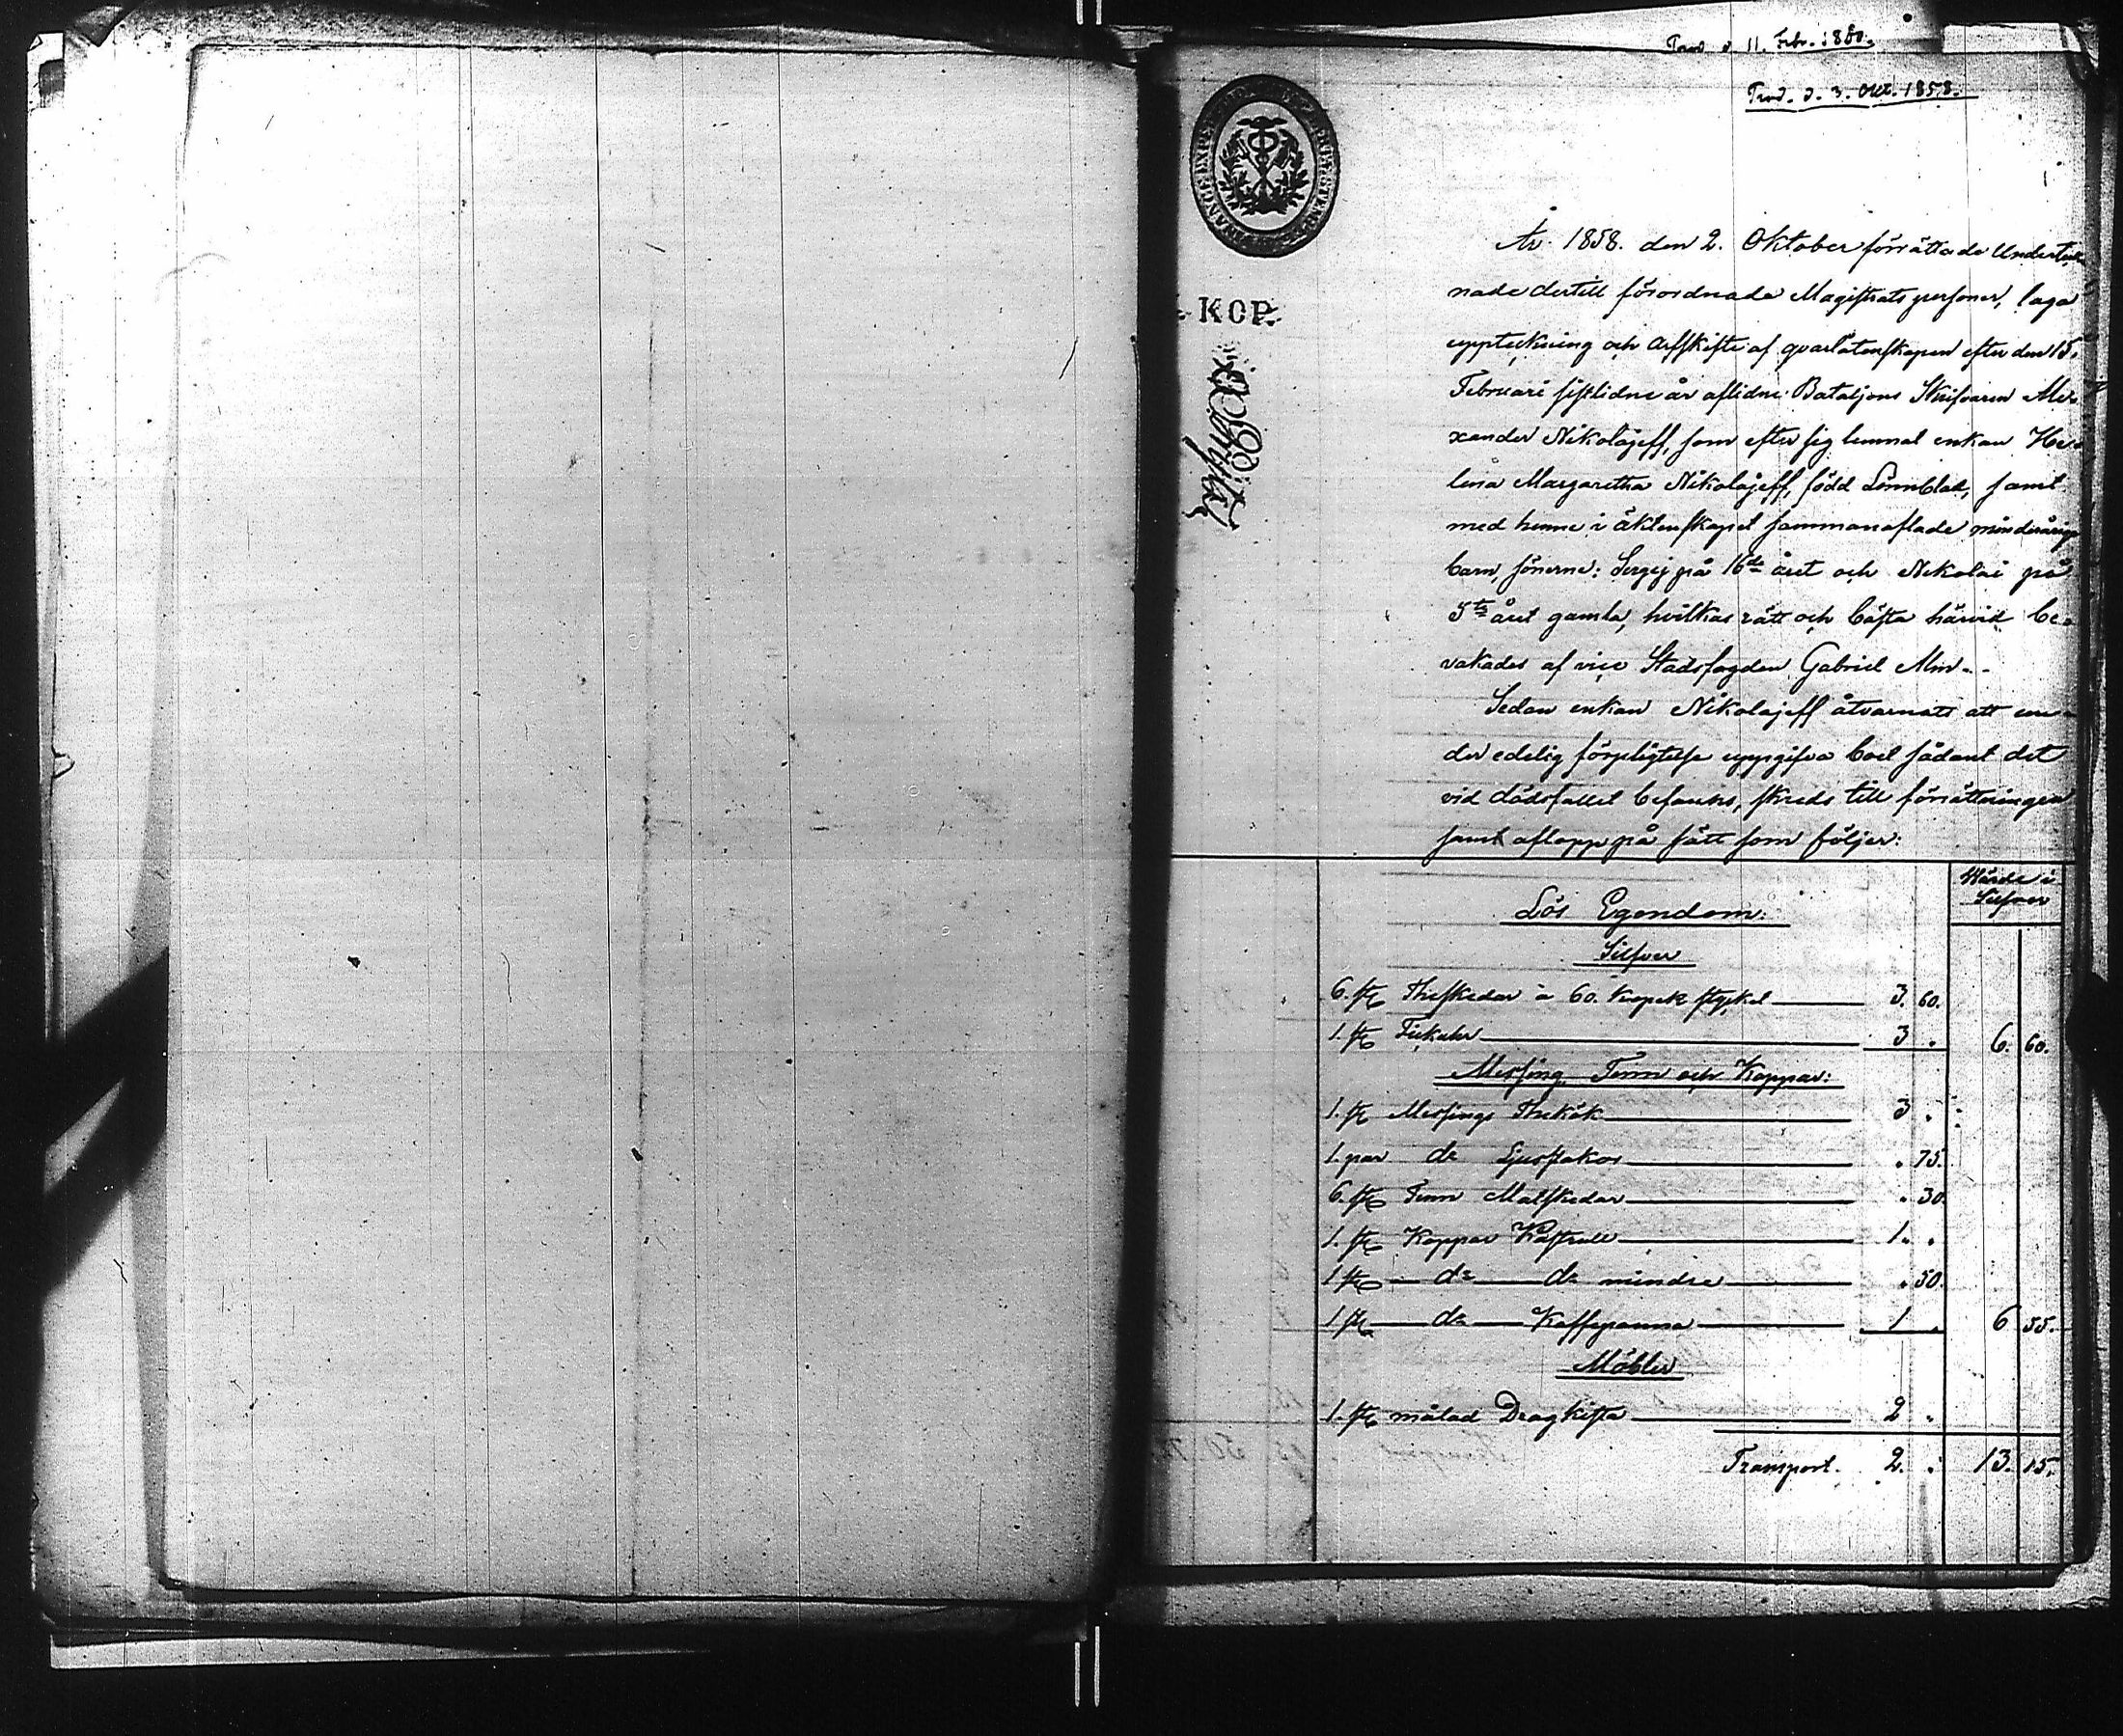 d. 11. Febr. 1860.
d. 3. Okt. 1858.
KOP.
År 1858. den 2. Oktober förrättade Underteck
nade dertill förordnade Magistrats personer, laga
uppteckning och arfskifte af qvarlåtenskapen efter den 15.
Februari sistlidne år aflidne Bataljons Skrifvaren Alex
xander Nikolajeff, som efter sig lemnat enkan He-
lena Margaretha Nikolajeff, född Lönnblad, samt
med henne i äktenskapet sammanaflade minderårige
barn, sönerne: Sergej på 16de året och Nikolai på
5te året gamla, hvilkas rätt och bästa härvid be-
vakades af vice Stadsfogden Gabriel Alm.-
Sedan enkan Nikolajeff åtvarnats att un-
der edelig förpligtelse uppgifva boet sådant det
vid dödsfallet befanns, skreds till förrättningen
samt aflopp på sätt som följer:
Värde i
Silfver
Lös Egendom:
Silfver
6. st Theskedar à 60. Kopek stycket 3. 60.
1. st Fickuhr 3 . 6. 60.
Messing, Tenn och Koppar:
1. st Messings Thekök 3 .
1. par do Ljusstakor . 75.
6. st Tenn Matskedar . 30.
1. st Koppar Kastrull 1. .
1 st do do mindre . 50.
1 st do Kaffepanna 1 . 6 55.
Möbler
1. st målad Dragkista 2 .
Transport. 2. . 13. 15.